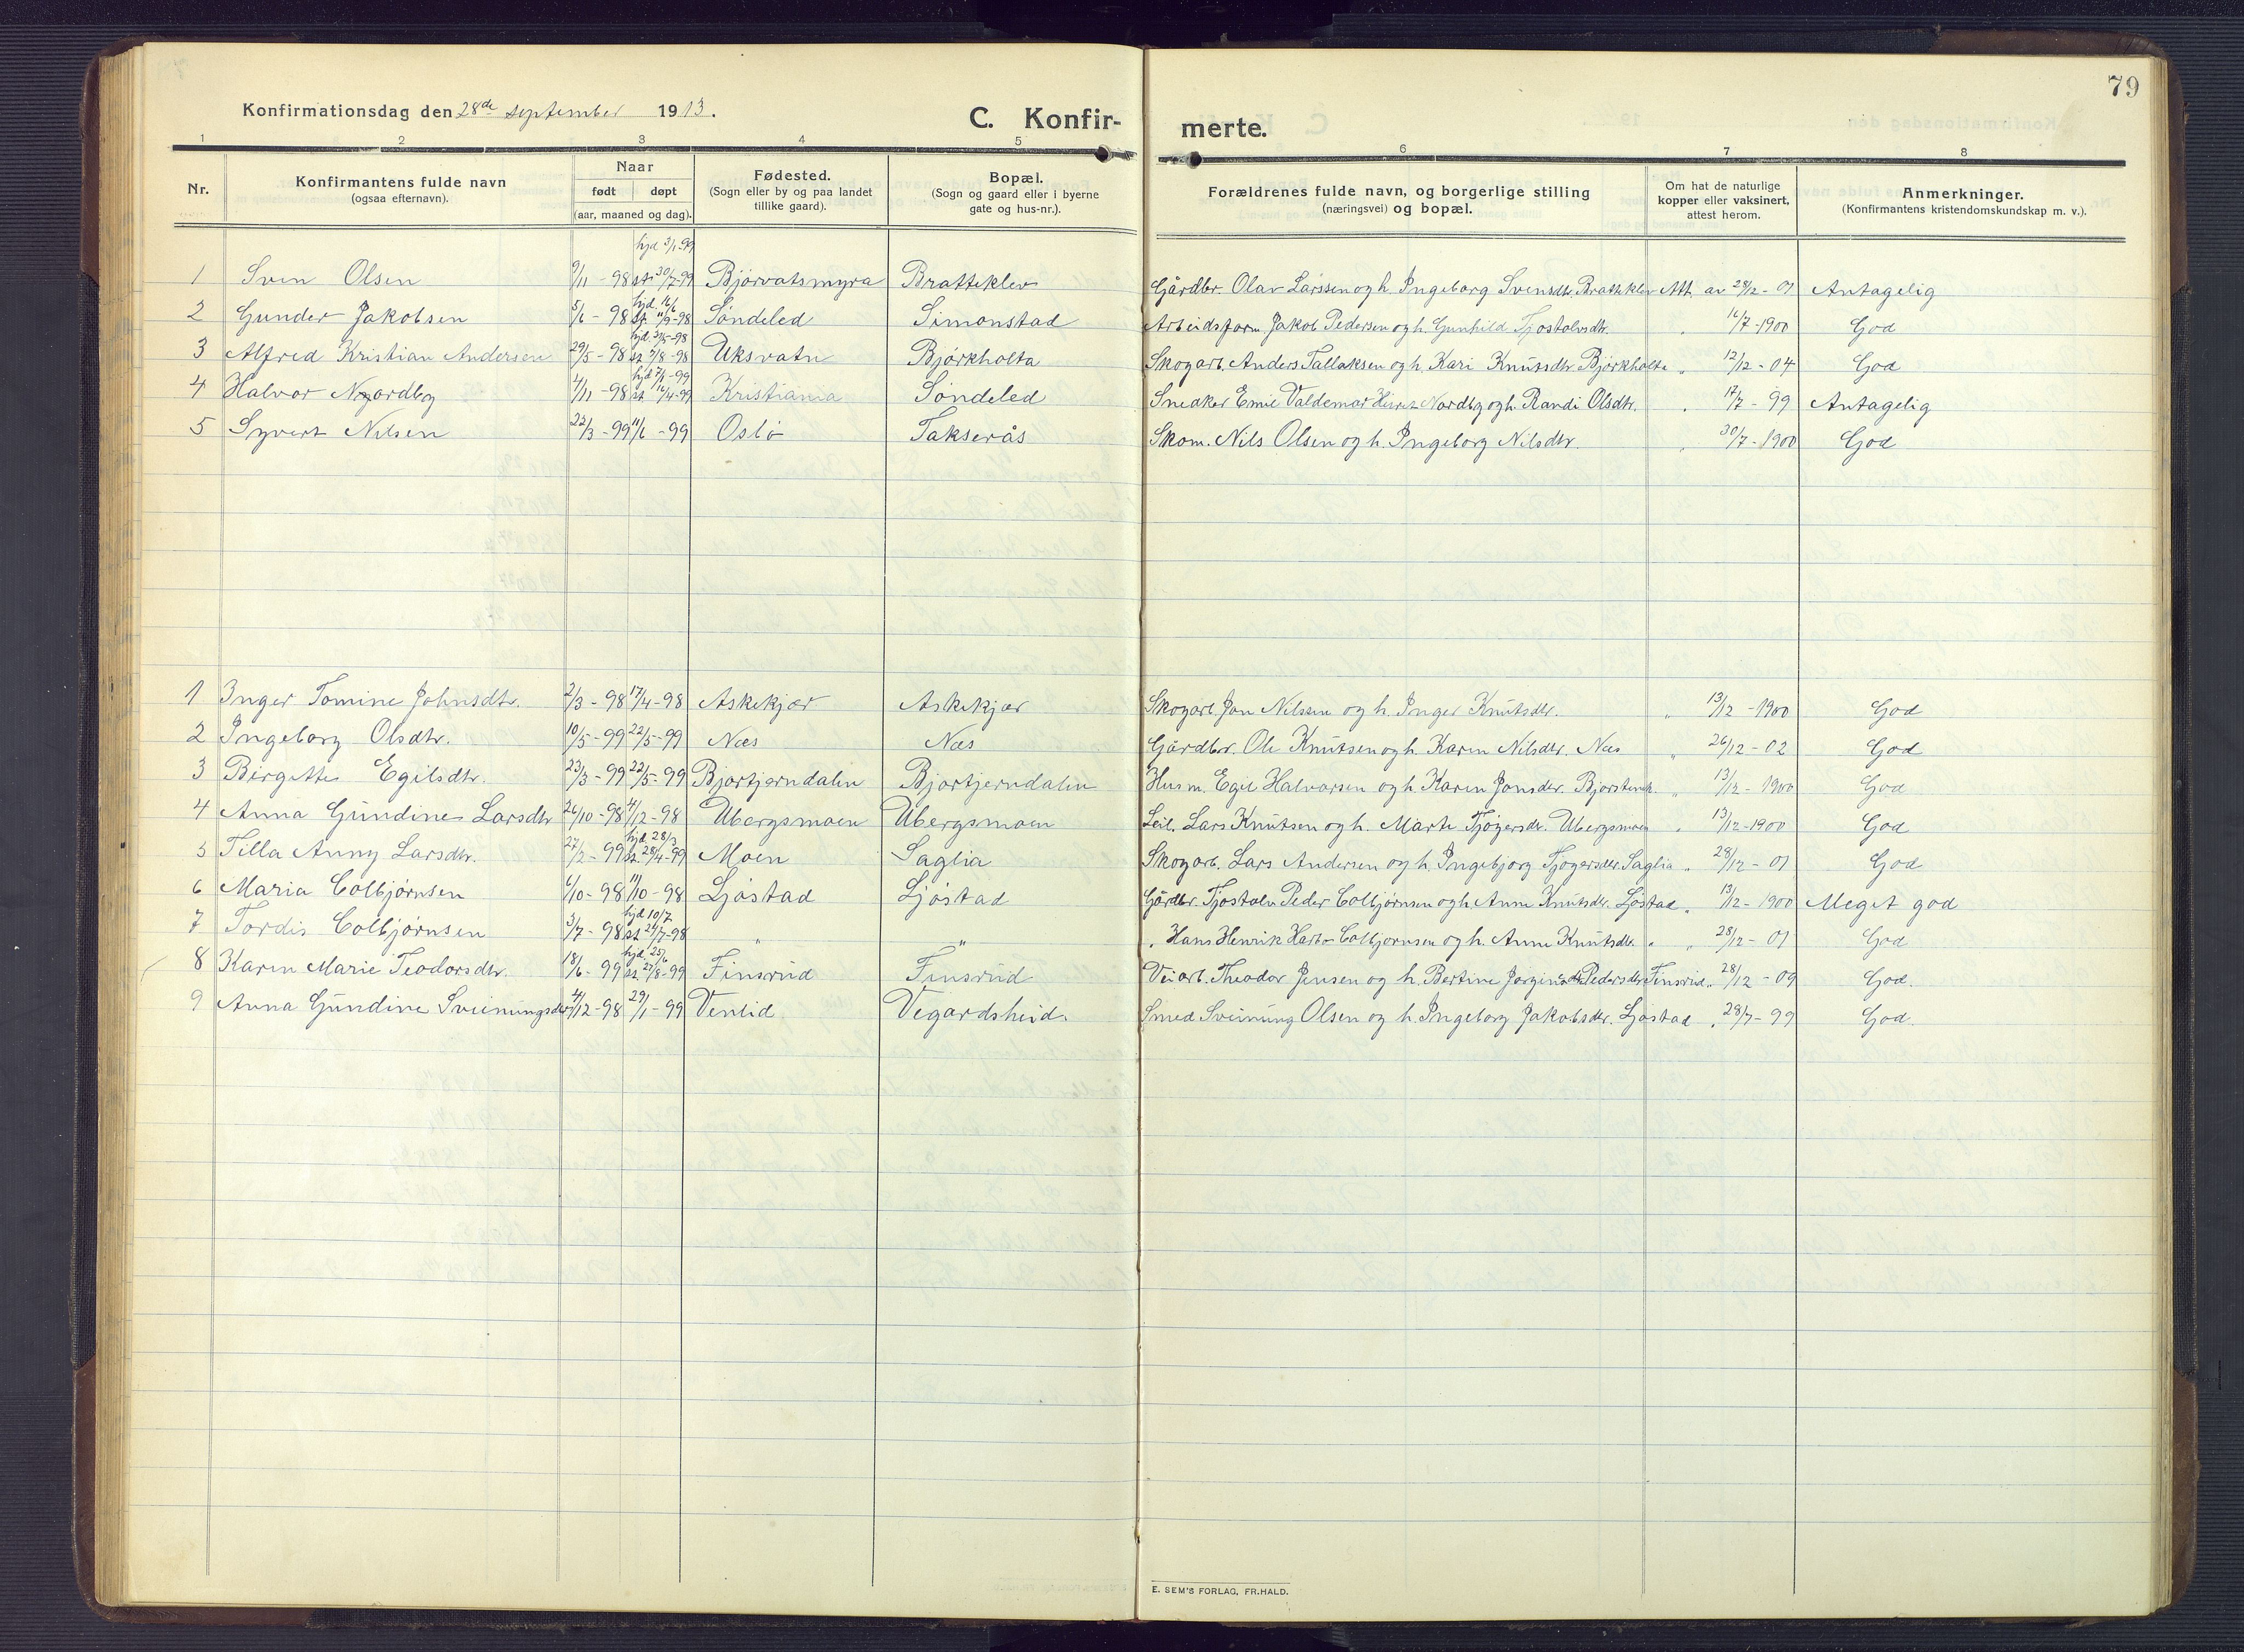 79
Konfirmationsdag den 28de september 1913.
C. Konfir-
merte.
1 2 3 4 5 6 7 8
Nr.
Konfirmantens fulde navn
(ogsaa efternavn).
Naar
født døpt
(aar, maaned og dag).
Fødested.
(Sogn eller by og paa landet
tillike gaard).
Bopæl.
(Sogn og gaard eller i byerne
gate og hus-nr.).
Forældrenes fulde navn, og borgerlige stilling
(næringsvei) og bopæl.
Om hat de naturlige
kopper eller vaksinert,
attest herom.
Anmerkninger.
(Konfirmantens kristendomskundskap m. v.).
1 Sven Olsen 9/11 - 98 hjd 3/1-99 st. 30/7-99 Bjørvatsmyra Bratteklev Gårdbr. Olav Larssen og h. Ingeborg Svensdtr. Bratteklev Att. av 28/12 - 01 Antagelig
2 Gunder Jakobsen 5/6 - 98 hjd. 16/6 st. 11/9-98 Søndeled Simonstad Arbeidsform. Jakob Pedersen og h. Gunhild Tjostolvsdtr. " 16/7-1900 God
3 Alfred Kristian Andersen 29/5 - 98 hjd. 31/5-98 st. 7/8-98 Uksvatn Bjørkholta Skogarb. Anders Tallaksen og h. Kari Knutsdtr. Bjørkholta " 12/12 - 04 God
4 Halvor Nordbg 4/11 - 98 hjd 7/1-99 st. 16/4-99 Kristiania Søndeled Snedker Emil Valdemar Nordbg og h. Randi Olsdtr. " 17/7 - 99 Antagelig
5 Syvert Nilsen 22/3 - 99 11/6 - 99 Oslo Takserås Skom. Nils Olsen og h. Ingeborg Nilsdtr. " 30/7 - 1900 God
1 Inger Tomine Johnsdtr. 2/3 - 98 17/4 - 98 Askekjær Askekjær Skogarb. Jon Nilssen og h. Inger Knutsdtr. " 13/12 - 1900 God
2 Ingeborg Olsdtr. 10/5 - 99 22/5 - 99 Næs Næs Gårdbr. Ole Knutsen og h. Karen Nilsdtr. Næs " 26/12 - 02 God
3 Birgitte Egilsdtr. 23/3 - 99 22/5 - 99 Bjortjerndalen Bjortjerndalen Husm. Egil Halvorsen og h. Karen Jonsdtr. " 13/12 - 1900 God
4 Anna Gundine Larsdtr 26/10 - 98 4/12 - 98 Ubergsmoen Ubergsmoen Leil. Lars Knutsen og h. Marte Tjøgersdtr. Ubergsmoen " 13/12 - 1900 God
5 Tilla Anny Larsdtr. 27/2 - 99 hjd. 28/3 st. 28/4-99 Moen Saglia Skogarb. Lars Andersen og h. Ingebjorg Tjøgersdtr. Saglia " 28/12 - 01 God
6 Maria Colbjørnsen 6/10 - 98 11/10 - 98 Ljøstad Ljøstad Gårdbr. Tjostolv Peder Colbjørnsen og h. Anne Knutsdtr. Ljøstad " 13/12 - 1900 Meget god
7 Tordis Colbjørnsen 3/7 - 98 hjd 10/7 st. 24/7-98 " " " Hans Henrik Colbjørnsen og h. Anne Knutsdtr. " " 28/12 - 01 God
8 Karen Marie Teodorsdtr. 18/6 - 99 hjd. 25/6 st. 27/8-99 Finsrud Finsrud Veiarb. Theodor Jensen og h. Bertine Jørgine Pedersdtr. Finsrud " 28/12 - 09 God.
9 Anna Gundine Sveinungsdtr 4/12 - 98 29/1 - 99 Venlid Vegardsheid. Smed Sveinung Olsen og h. Ingeborg Jakobsdtr. Ljøstad " 28/7 - 99 God.
E. SEM'S FORLAG, FR.HALD.